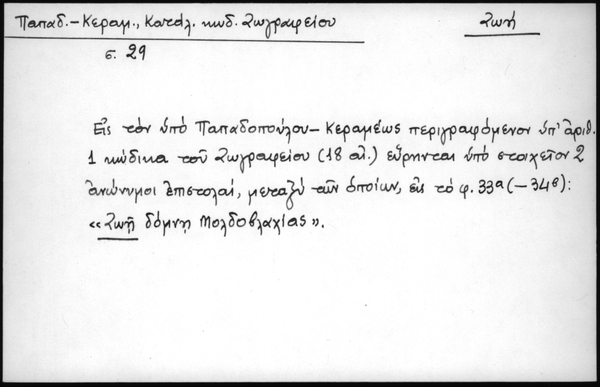 Παπαδ.-Κεραμ., Κατάλ. κωδ. Ζωγραφείου
Ζωή
σ. 29
Εἰς τὸν ὑπὸ Παπαδοπούλου-Κεραμέως περιγραφόμενον ὑπ' ἀριθ.
1 κώδικα τοῦ Ζωγραφείου (18 αἰ.) εὕρηνται ὑπὸ στοιχεῖον 2
ἀνώνυμοι ἐπιστολαί, μεταξὺ τῶν ὁποίων, εἰς τὸ φ. 33α (-34β):
«Ζωῇ δόμνῃ Μολδοβλαχίας».